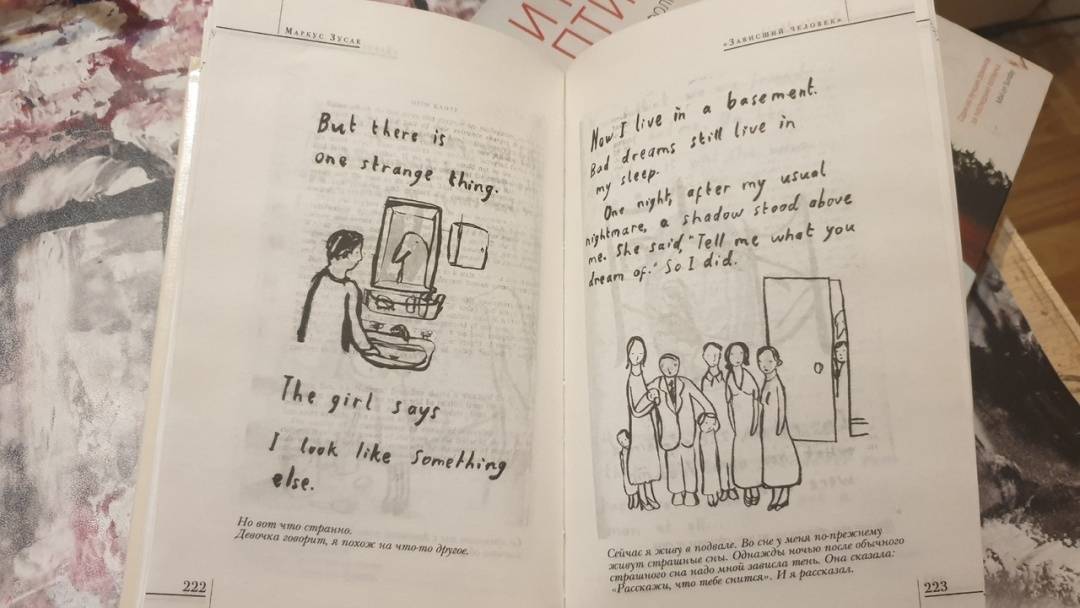 Маркус Зусак
But there is
one strange thing.
The girl says
I look like something
else.
Но вот что странно.
Девочка говорит, я похож на что-то другое.
222
«Зависший человек»
Now I live in a basement.
Bad dreams still live in
my sleep.
One night, after my usual
nightmare, a shadow stood above
me. She said, "Tell me what you
dream of." So I did.
Сейчас я живу в подвале. Во сне у меня по-прежнему
живут страшные сны. Однажды ночью после обычного
страшного сна надо мной зависла тень. Она сказала:
«Расскажи, что тебе снится». И я рассказал.
223
И
ПТИ